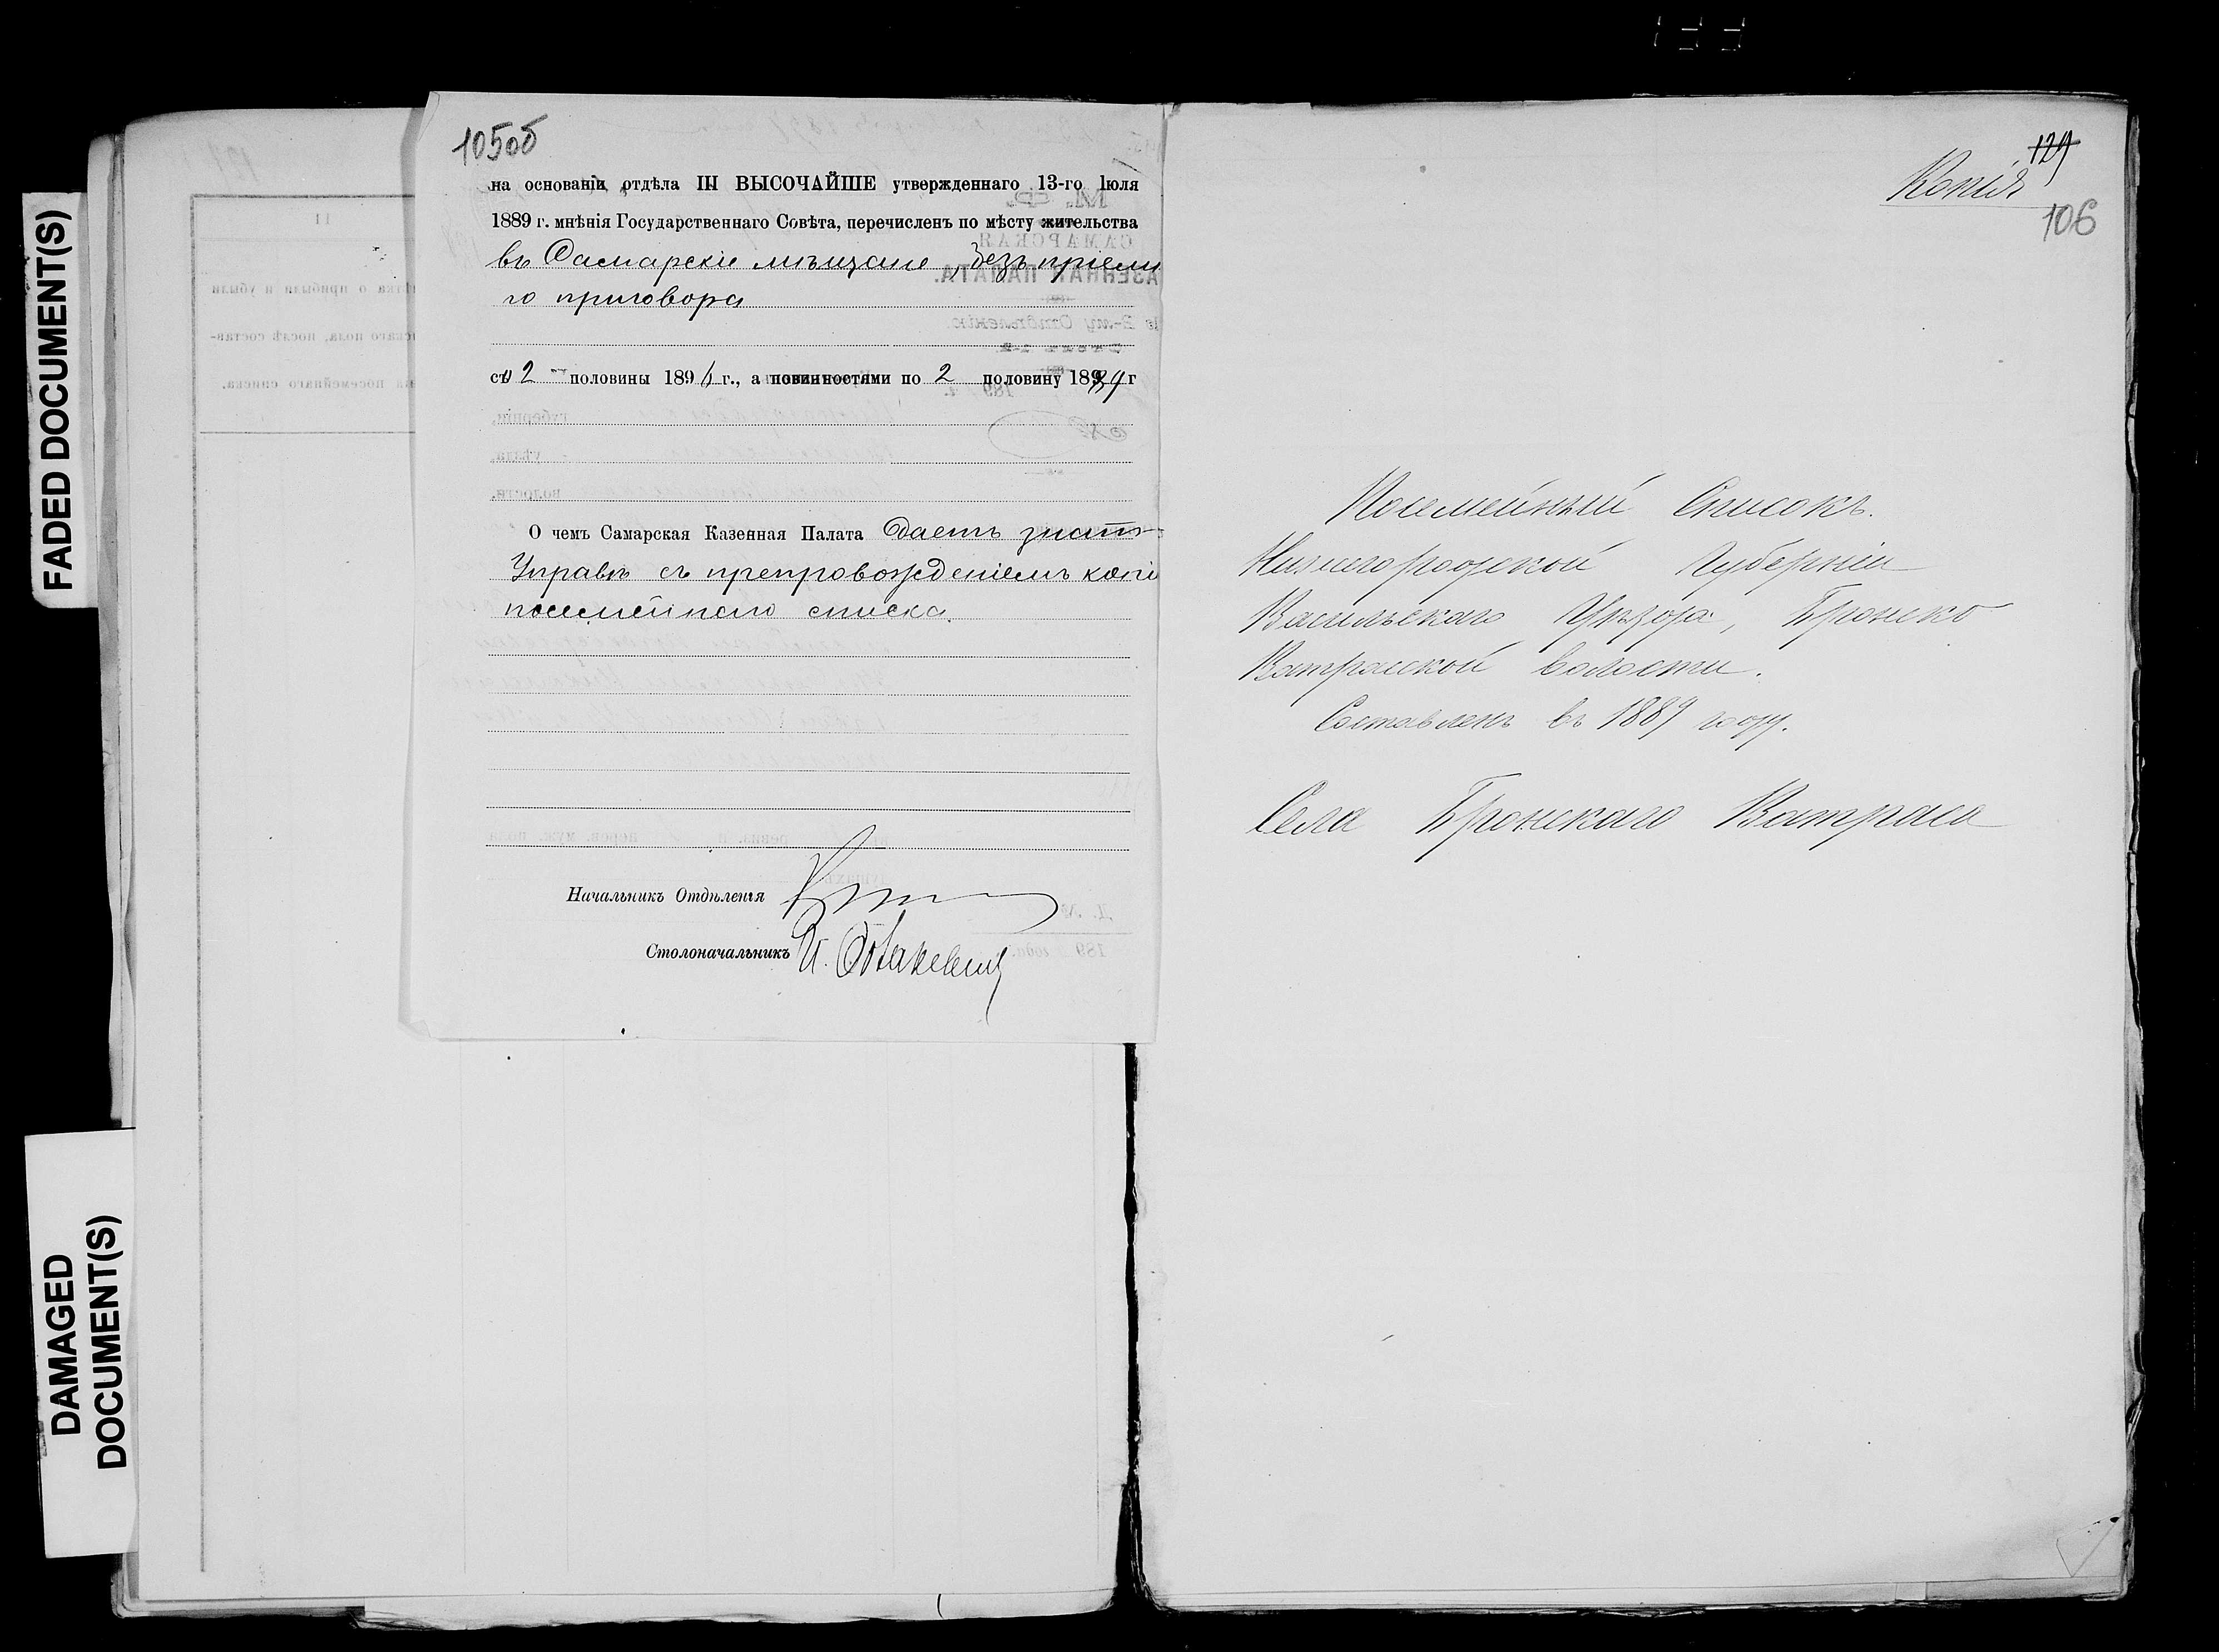 FADED DOCUMENT(S)
DAMAGED
DOCUMENT(S)
105об
на основаніи отдѣла III ВЫСОЧАЙШЕ утвержденнаго 13-го Іюля
1889 г. мнѣнія Государственнаго Совѣта, перечисленъ по мѣсту жительства
въ Самарскіе мѣщане, безъ пріемн
го приговора
съ 2 половины 189 г., а повинностями по 2 половину 189 г
О чемъ Самарская Казенная Палата даетъ знать
Управѣ съ препровожденіемъ копіи
посемейнаго списка.
Начальникъ Отдѣленія
Столоначальникъ
129
Копія
106
Посемейный Списокъ.
Нижегородской Губерніи
Васильскаго Уѣзда, Бронско
Ватрасской волости.
Составленъ въ 1889 году.
Села Бронскаго Ватраса